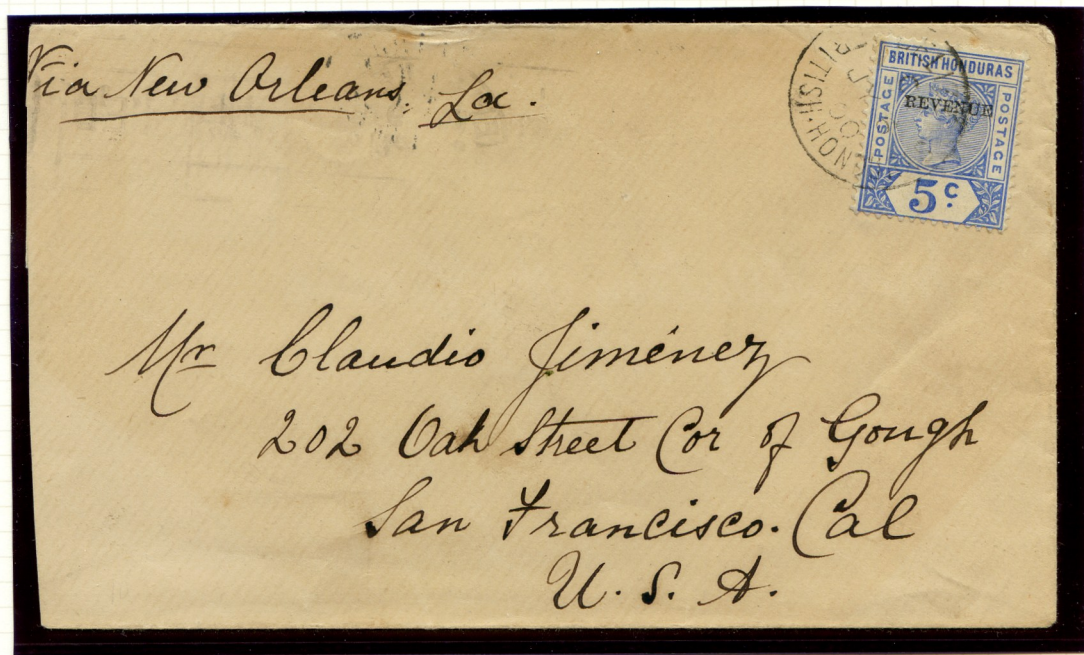 Via New Orleans, La.
BRITISH HONDURAS
POSTAGE
REVENUE
POSTAGE
5c.
Mr Claudio Jiménez
202 Oak Street Cor of Gough
San Francisco. Cal
U. S. A.